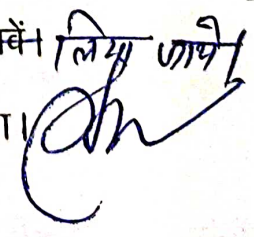 वें। लिया जाये।
ा।